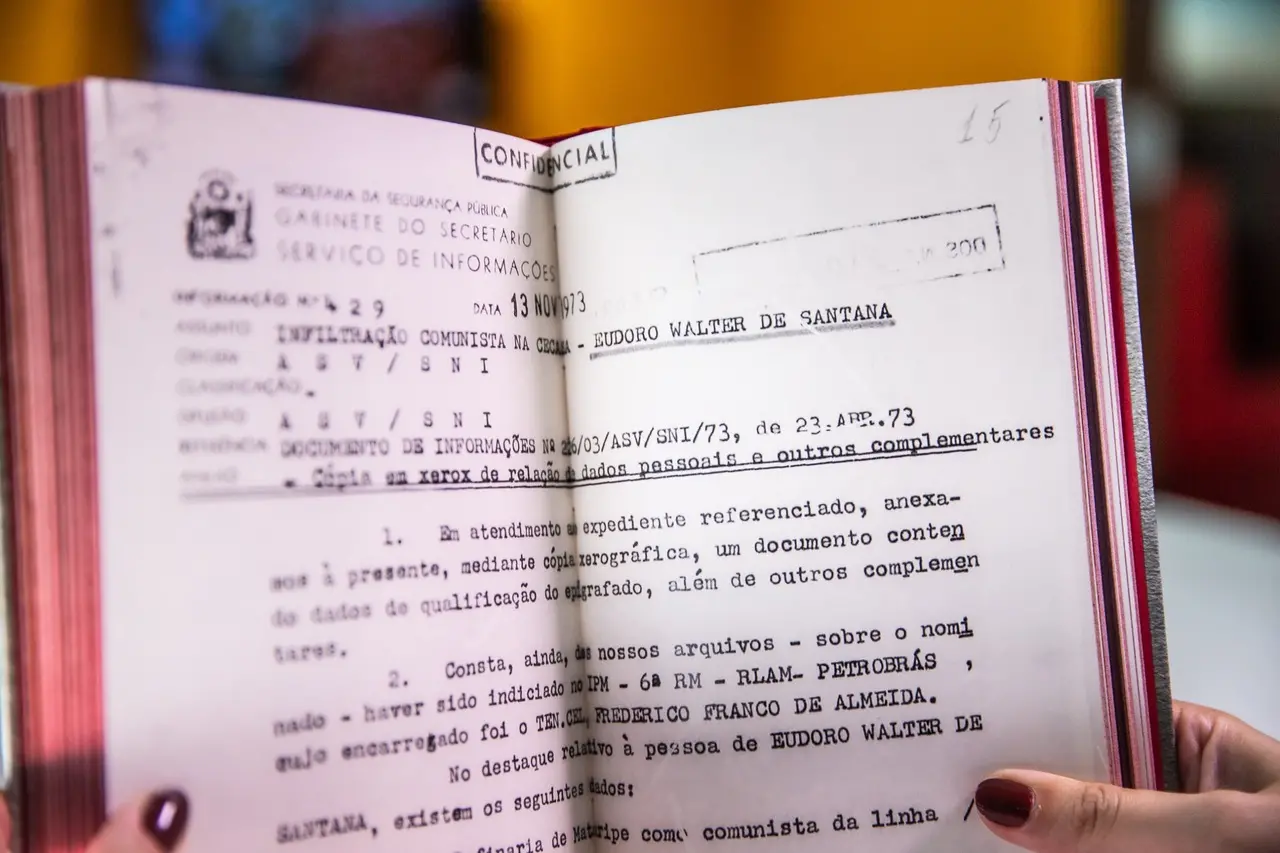 15
CONFIDENCIAL
SECRETARIA DA SEGURANÇA PÚBLICA
GABINETE DO SECRETÁRIO
SERVIÇO DE INFORMAÇÕES
300
INFORMAÇÃO Nº 429 DATA 13 NOV 1973
ASSUNTO INFILTRAÇÃO COMUNISTA NA - EUDORO WALTER DE SANTANA
ORIGEM A S V / S N I
CLASSIFICAÇÃO -
DIFUSÃO A S V / S N I
REFERÊNCIA DOCUMENTO DE INFORMAÇÕES Nº 226/03/ASV/SNI/73, de 23.ABR.73
ANEXO - Cópia em xerox de relação de dados pessoais e outros complementares
1. Em atendimento ao expediente referenciado, anexa-
mos à presente, mediante cópia xerográfica, um documento conten
do dados de qualificação do epigrafado, além de outros complemen
tares.
2. Consta, ainda, dos nossos arquivos - sobre o nomi
nado - haver sido indiciado no IPM - 6ª RM - RLAM- PETROBRÁS ,
cujo encarregado foi o TEN.CEL. FREDERICO FRANCO DE ALMEIDA.
No destaque relativo à pessoa de EUDORO WALTER DE
SANTANA, existem os seguintes dados:
de Mataripe como comunista da linha /